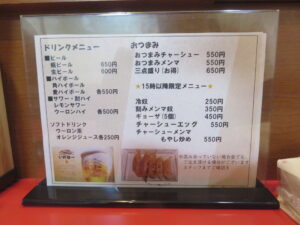 ドリンクメニュー
■ビール
瓶ビール 650円
生ビール 600円
■ハイボール
角ハイボール
麦ハイボール 各550円
■サワー・酎ハイ
レモンサワー
ウーロンハイ 各500円
ソフトドリンク
ウーロン茶
オレンジジュース各250円
おつまみ
おつまみチャーシュー 550円
おつまみメンマ 550円
三点盛り(お得) 650円
★15時以降限定メニュー★
冷奴 250円
刻みメンマ奴 350円
ギョーザ(5個) 450円
チャーシューエッグ 550円
チャーシューメンマ
もやし炒め 550円